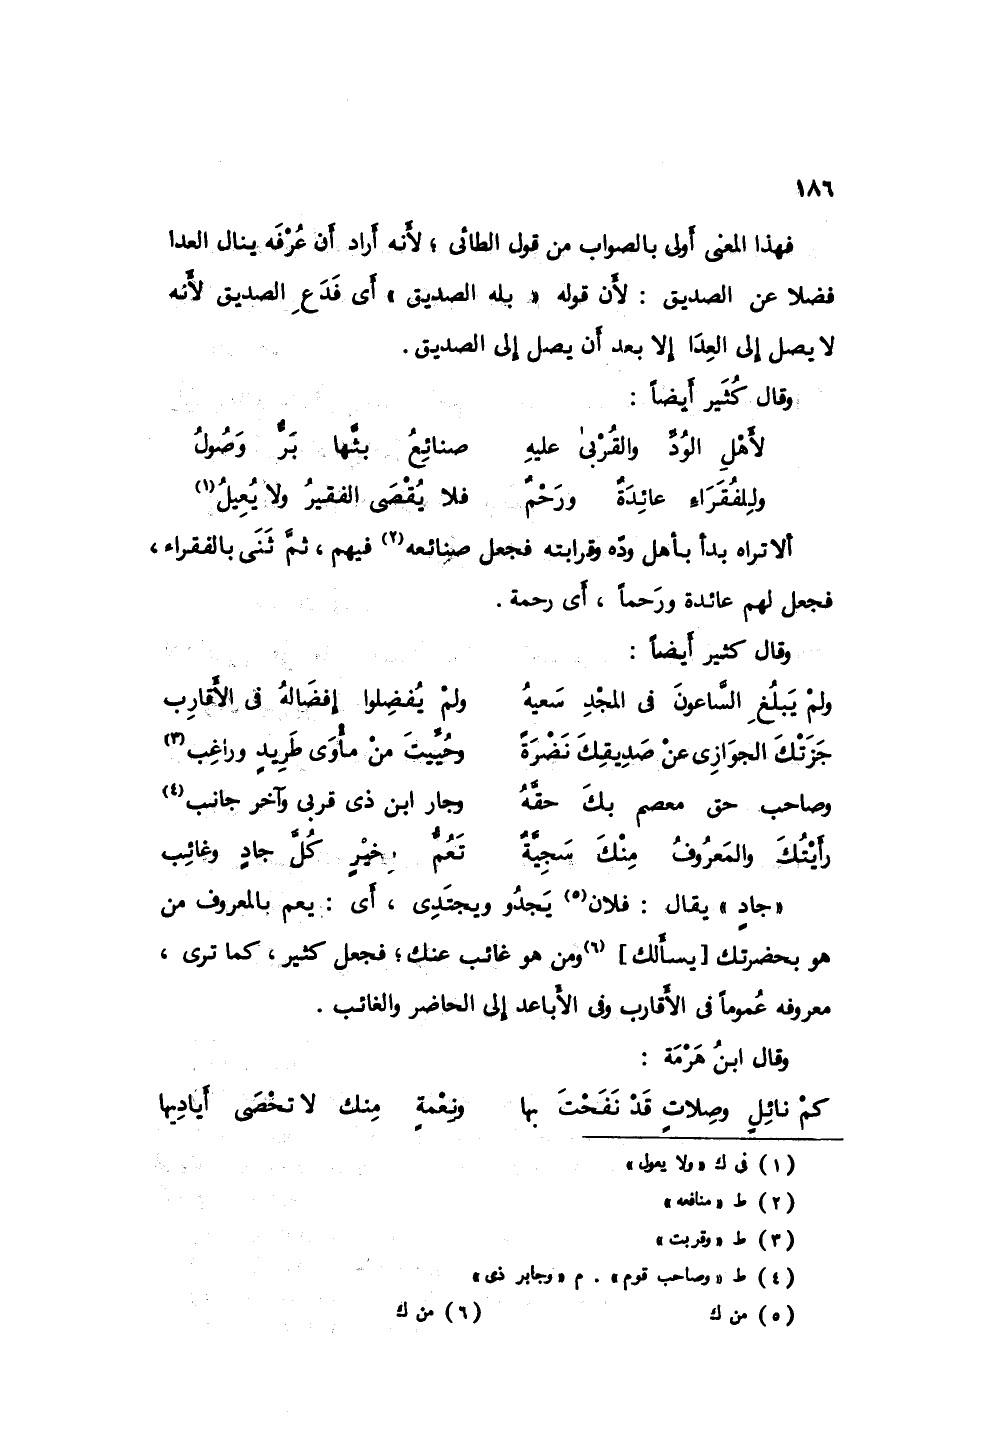 ١٨٦
فهذا المعنى أَولى بالصواب من قول الطائى ؛ لأَنه أَراد أَن عُرْفَه ينال العدا
فضلا عن الصديق : لأَن قوله « بله الصديق » أَى فَدَعِ الصديق لأَنه
لا يصل إلى العِدَا إلا بعد أَن يصل إلى الصديق .
وقال كُثَير أَيضاً :
لأَهْلِ الوُدِّ والقُرْبىٰ عليهِ صنائِعُ بثَّها بَرٌّ وَصُولُ
ولِلفُقَرَاءِ عائِدَةٌ ورَحْمٌ فلا يُقْصَى الفقيرُ ولا يُعِيلُ(١)
ألا تراه بدأ بأهل ودّه وقرابته فجعل صنائعه(٢) فيهم ، ثمَّ ثَنَى بالفقراء ،
فجعل لهم عائدة ورَحماً ، أَى رحمة .
وقال كثير أَيضاً :
ولمْ يَبلُغِ السَّاعونَ فى المجْدِ سَعيهُ ولمْ يُفضِلوا إفضَالهُ فى الأَقارِبِ
جَزَتْكَ الجوَازِى عنْ صَدِيقِكَ نَضْرَةً وحُيِّيتَ منْ مأْوَى طَرِيدٍ وراغِبِ(٣)
وصاحب حق معصم بكَ حقَّهُ وجار ابن ذى قربى وآخر جانب(٤)
رأَيْتُكَ والمَعرُوفُ مِنْكَ سَجِيَّةٌ تَعُمُّ بِخيْرٍ كُلَّ جادٍ وغائِب
«جادٍ » يقال : فلان(٥) يَجدُو ويجتَدِى ، أَى : يعم بالمعروف من
هو بحضرتك [ يسأَلك ] (٦) ومن هو غائب عنك ؛ فجعل كثير ، كما ترى ،
معروفه عُموماً فى الأَقارب وفى الأَباعد إلى الحاضر والغائب .
وقال ابنُ هَرْمَة :
كمْ نائِلٍ وصِلاتٍ قَدْ نَفَحْتَ بها ونِعْمةٍ مِنك لا تخْصَى أَيادِيها
(١) فى ك «ولا يعول»
(٢) ط «منافعه»
(٣) ط «وقربت»
(٤) ط «وصاحب قوم» . م «وجابر ذى»
(٥) من ك (٦) من ك